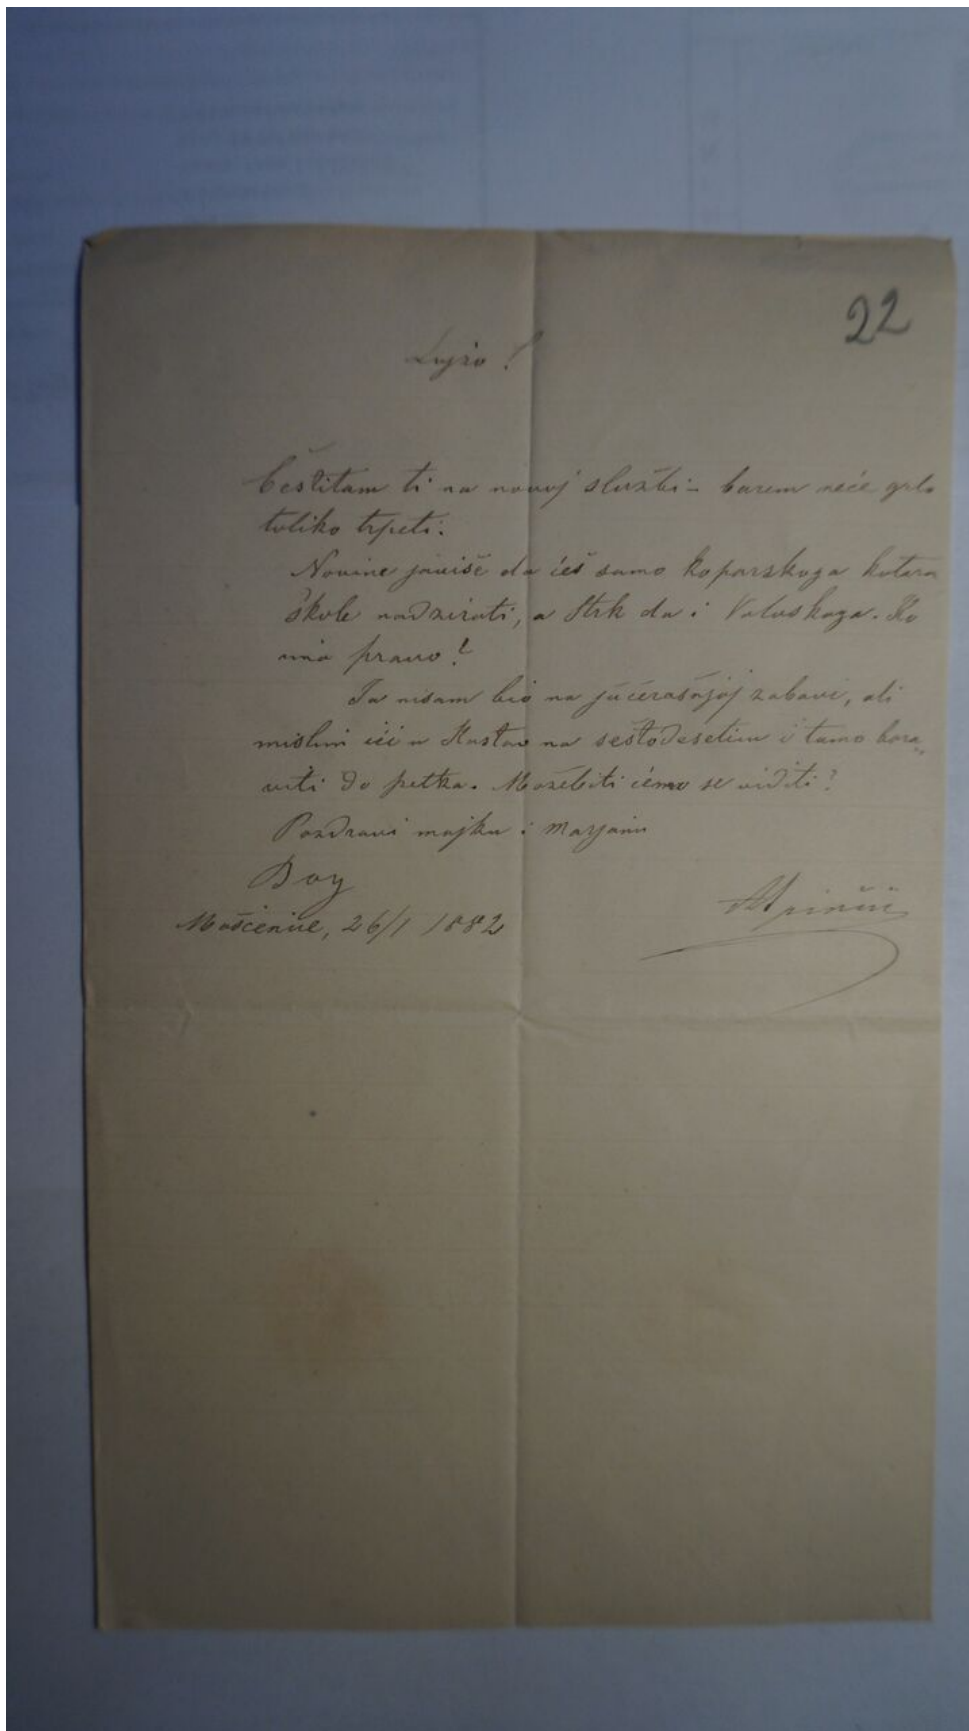 22
Lujzo!
Čestitam ti na novoj službi – barem neće grlo
toliko trpeti.
Novine javiše da ćeš samo koparskoga kotara
škole nadzirati, a Strk da i Voloskoga. Ko
ima pravo?
Ja nisam bio na jučerašnjoj zabavi, ali
mislim ići u Kastav na šestodeseticu i tamo bora„
viti do petka. Možebiti ćemo se viditi?
Pozdravi majku i
Bog
Mošćenice, 26/1 1882